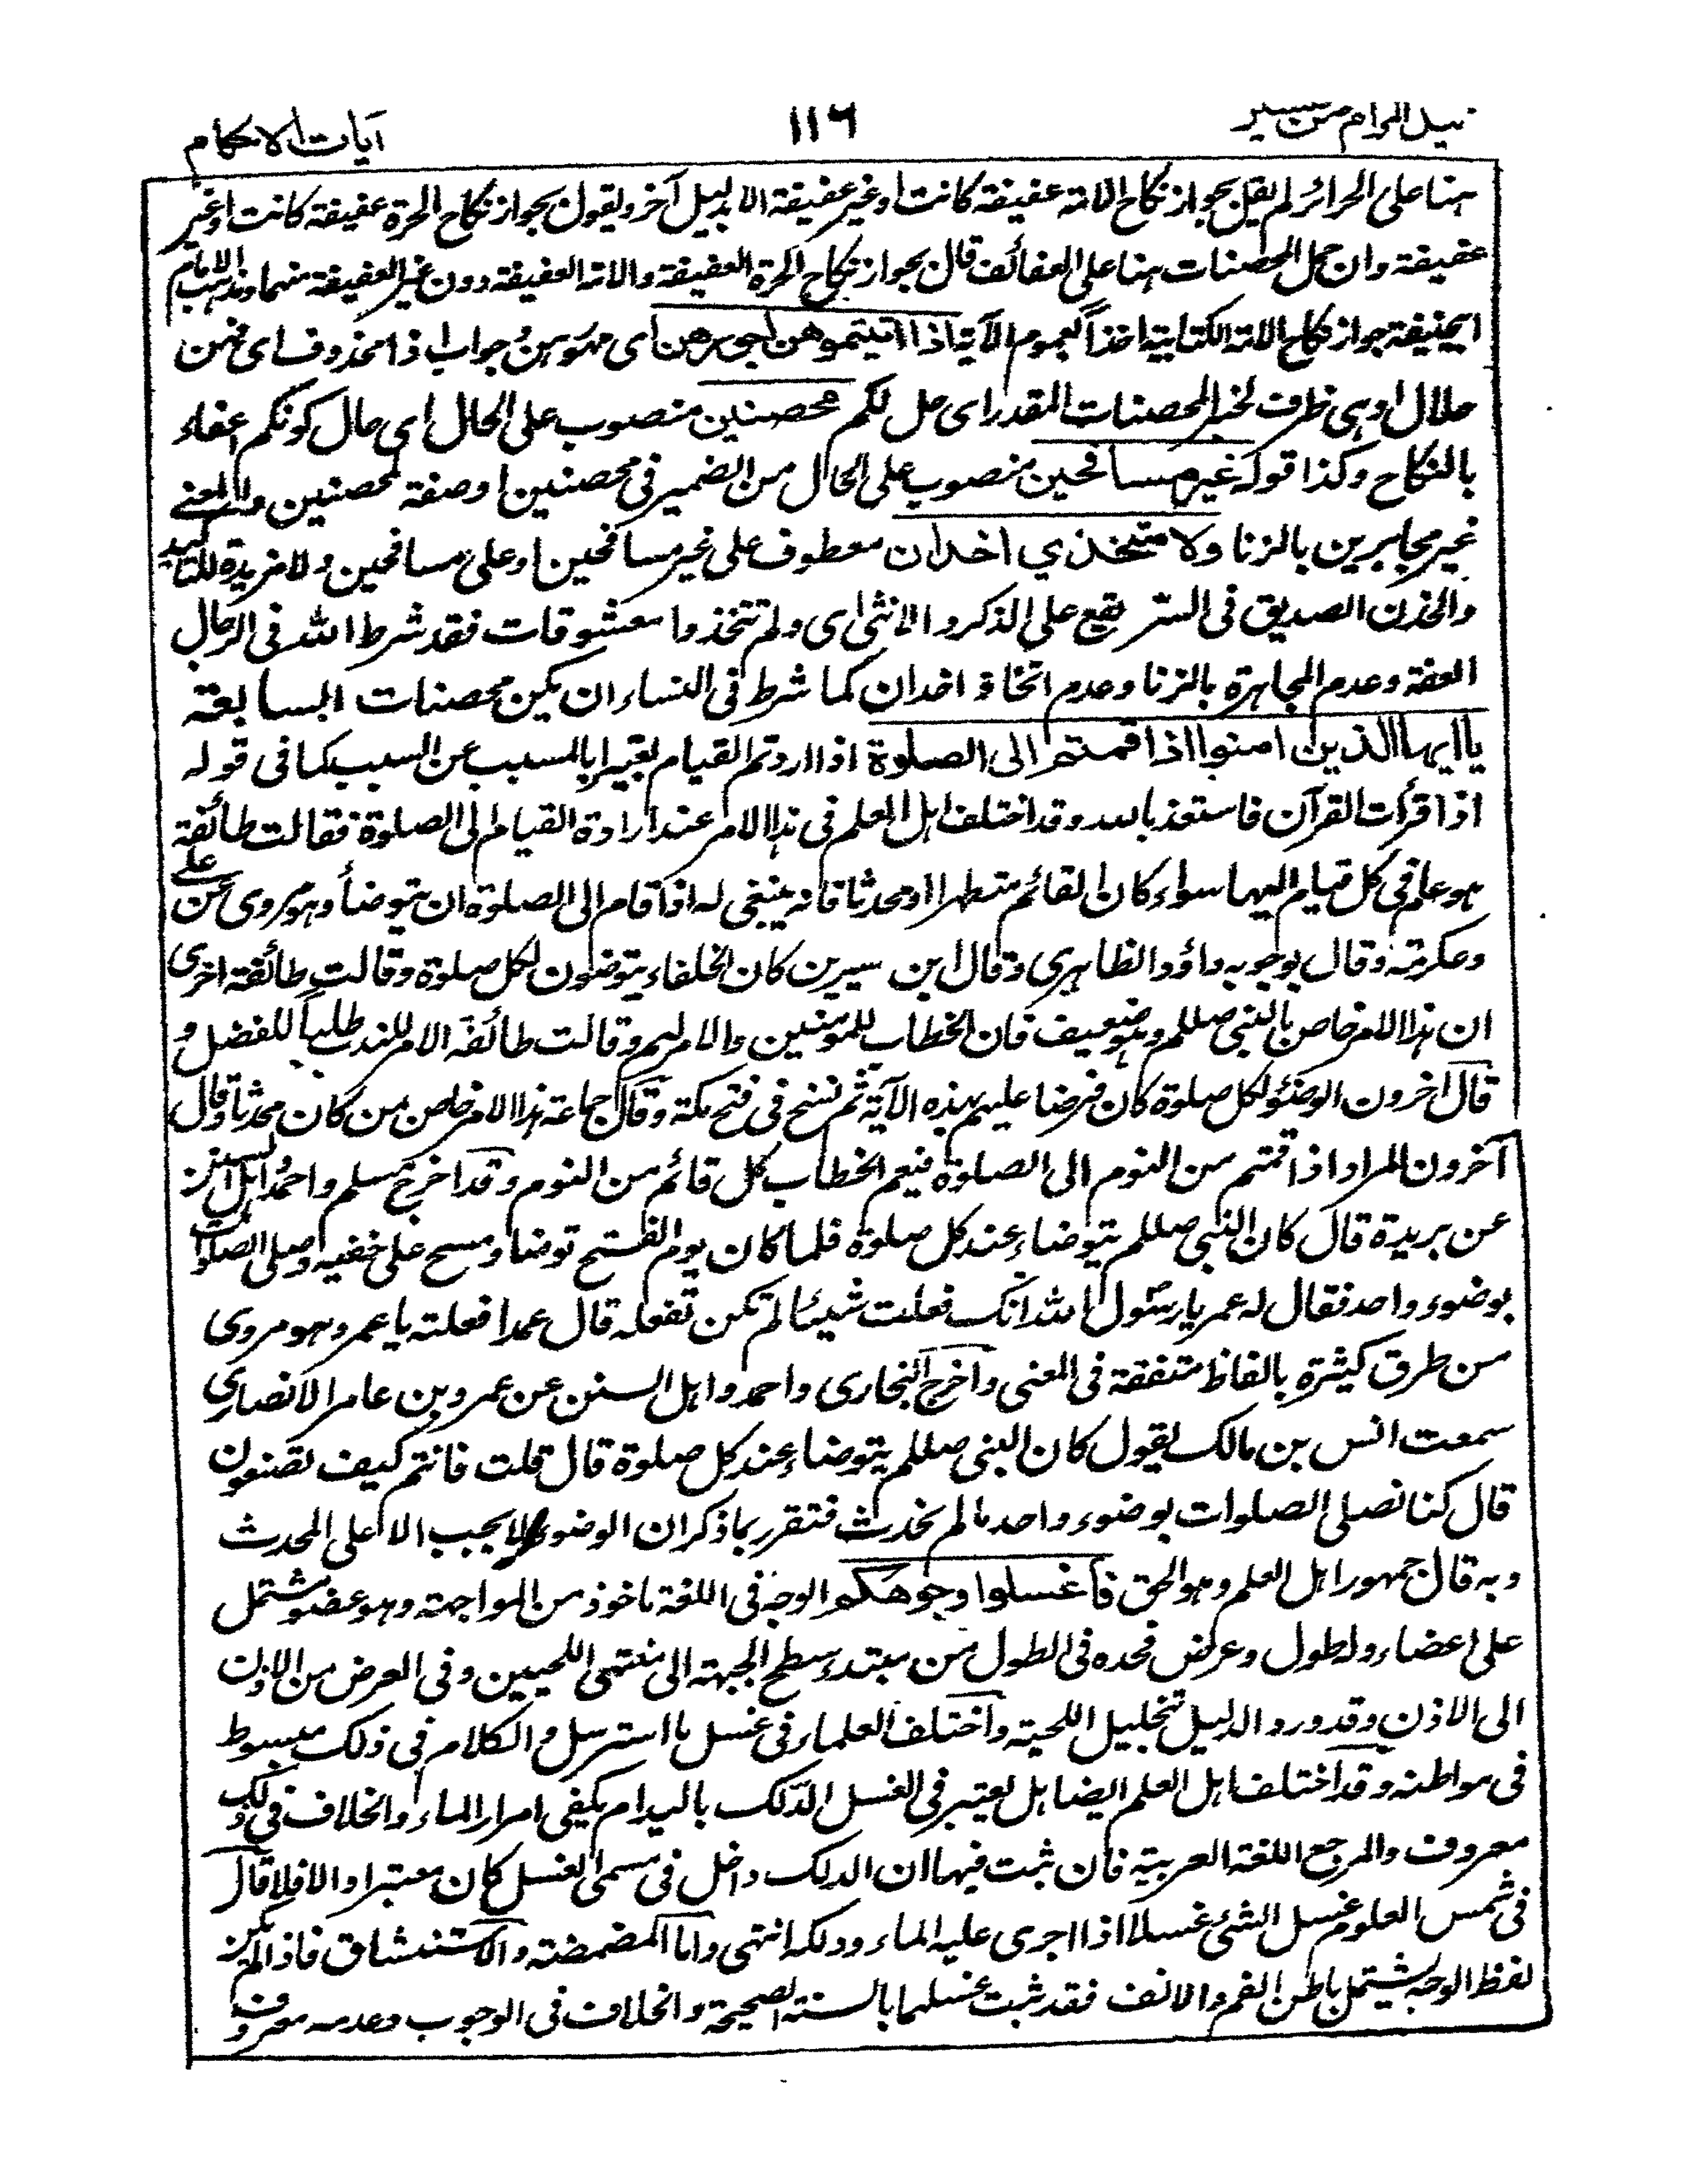 نيل المرام من تفسير
١١٦
آيات الاحكام
هنا على الحرائر لم يقل بجواز نكاح الامة عفيفة كانت او غير عفيفة الا بدليل آخر ويقول بجواز نكاح الحرة عفيفة كانت او غير
عفيفة وان حمل المحصنات هنا على العفائف قال بجواز نكاح الحرة العفيفة والامة العفيفة دون غير العفيفة منهما ومذهب الامام
ابيحنيفة جواز نكاح الامة الكتابية اخذاً بعموم الآية اذا اتيتموهن اجورهن اى مهورهن وجواب اذا محذوف اى فهن
حلال او هى ظرف لخبر المحصنات المقدر اى حل لكم محصنين منصوب على الحال اى حال كونكم اعفاء
بالنكاح وكذا قوله غير مسافحين منصوب على الحال من الضمير فى محصنين او صفة لمحصنين والمعنے
غير مجاهرين بالزنا ولا متخذي اخدان معطوف على غير مسافحين او على مسافحين ولا مزيدة للتاكيد
والخدن الصديق فى السر يقع على الذكر والانثى اى ولم تتخذوا معشوقات فقد شرط الله فى الرجال
العفة وعدم المجاهرة بالزنا وعدم اتخاذ اخدان كما شرط فى النساء ان يكن محصنات السابعة
يا ايها الذين امنوا اذا قمتم الى الصلوة اذا اردتم القيام تعبيرا بالمسبب عن السبب كما فى قوله
اذا قرأت القرآن فاستعذ بالله وقد اختلف اهل العلم فى هذا الامر عند ارادة القيام الى الصلوة فقالت طائفة
هو عام فى كل قيام اليها سواء كان القائم متطهرا او محدثا فانه ينبغى له اذا قام الى الصلوة ان يتوضأ وهو مروى عن على
وعكرمة وقال بوجوبه داؤد الظاهرى وقال ابن سيرين كان الخلفاء يتوضون لكل صلوة وقالت طائفة اخرى
ان هذا الامر خاص بالنبى صللم وهو ضعيف فان الخطاب للمومنين والامر لهم وقالت طائفة الامر للندب طلباً للفضل و
قال اخرون الوضئو لكل صلوة كان فرضا عليهم بهذه الآية ثم نسخ فى فتح مكة وقال جماعة هذا الامر خاص بمن كان محدثا وقال
آخرون المراد اذا قمتم من النوم الى الصلوة فيعم الخطاب كل قائم من النوم وقد اخرج مسلم واحمد واهل السنن
عن بريدة قال كان النبى صللم يتوضاء عند كل صلوة فلما كان يوم الفتح توضا ومسح على خفيه وصلى الصلوات
بوضوء واحد فقال له عمر يا رسول الله انك فعلت شيئا لم تكن تفعله قال عمدا فعلته يا عمر وهو مروى
من طرق كثيرة بالفاظ متفقة فى المعنى واخرج البخارى واحمد واهل السنن عن عمرو بن عامر الانصاري
سمعت انس بن مالك يقول كان النبى صللم يتوضاء عند كل صلوة قال قلت فانتم كيف تصنعون
قال كنا نصلى الصلوات بوضوء واحد ما لم نحدث فتقرر بما ذكر ان الوضوء لا يجب الا على المحدث
وبه قال جمهور اهل العلم وهو الحق فاغسلوا وجوهكم الوجه فى اللغة ماخوذ من المواجهة وهو عضو مشتمل
على اعضاء وله طول وعرض فحده فى الطول من مبتدء سطح الجبهة الى منتهى اللحيين وفى العرض من الاذن
الى الاذن وقد ورد الدليل تخليل اللحية واختلف العلماء فى غسل ما استرسل والكلام فى ذلك مبسوط
فى مواطنه وقد اختلف اهل العلم ايضا هل يعتبر فى الغسل الدلك باليد ام يكفى امرار الماء والخلاف فى ذلك
معروف والمرجع اللغة العربية فان ثبت فيها ان الدلك داخل فى مسمى الغسل كان معتبرا والا فلا قال
فى شمس العلوم غسل الشئ غسلا اذا اجرى عليه الماء ودلكه انتهى واما المضمضة والاستنشاق فاذا لم يكن
لفظ الوجه يشتمل باطن الفم والانف فقد ثبت غسلهما بالسنة الصحيحة والخلاف فى الوجوب وعدمه معروف